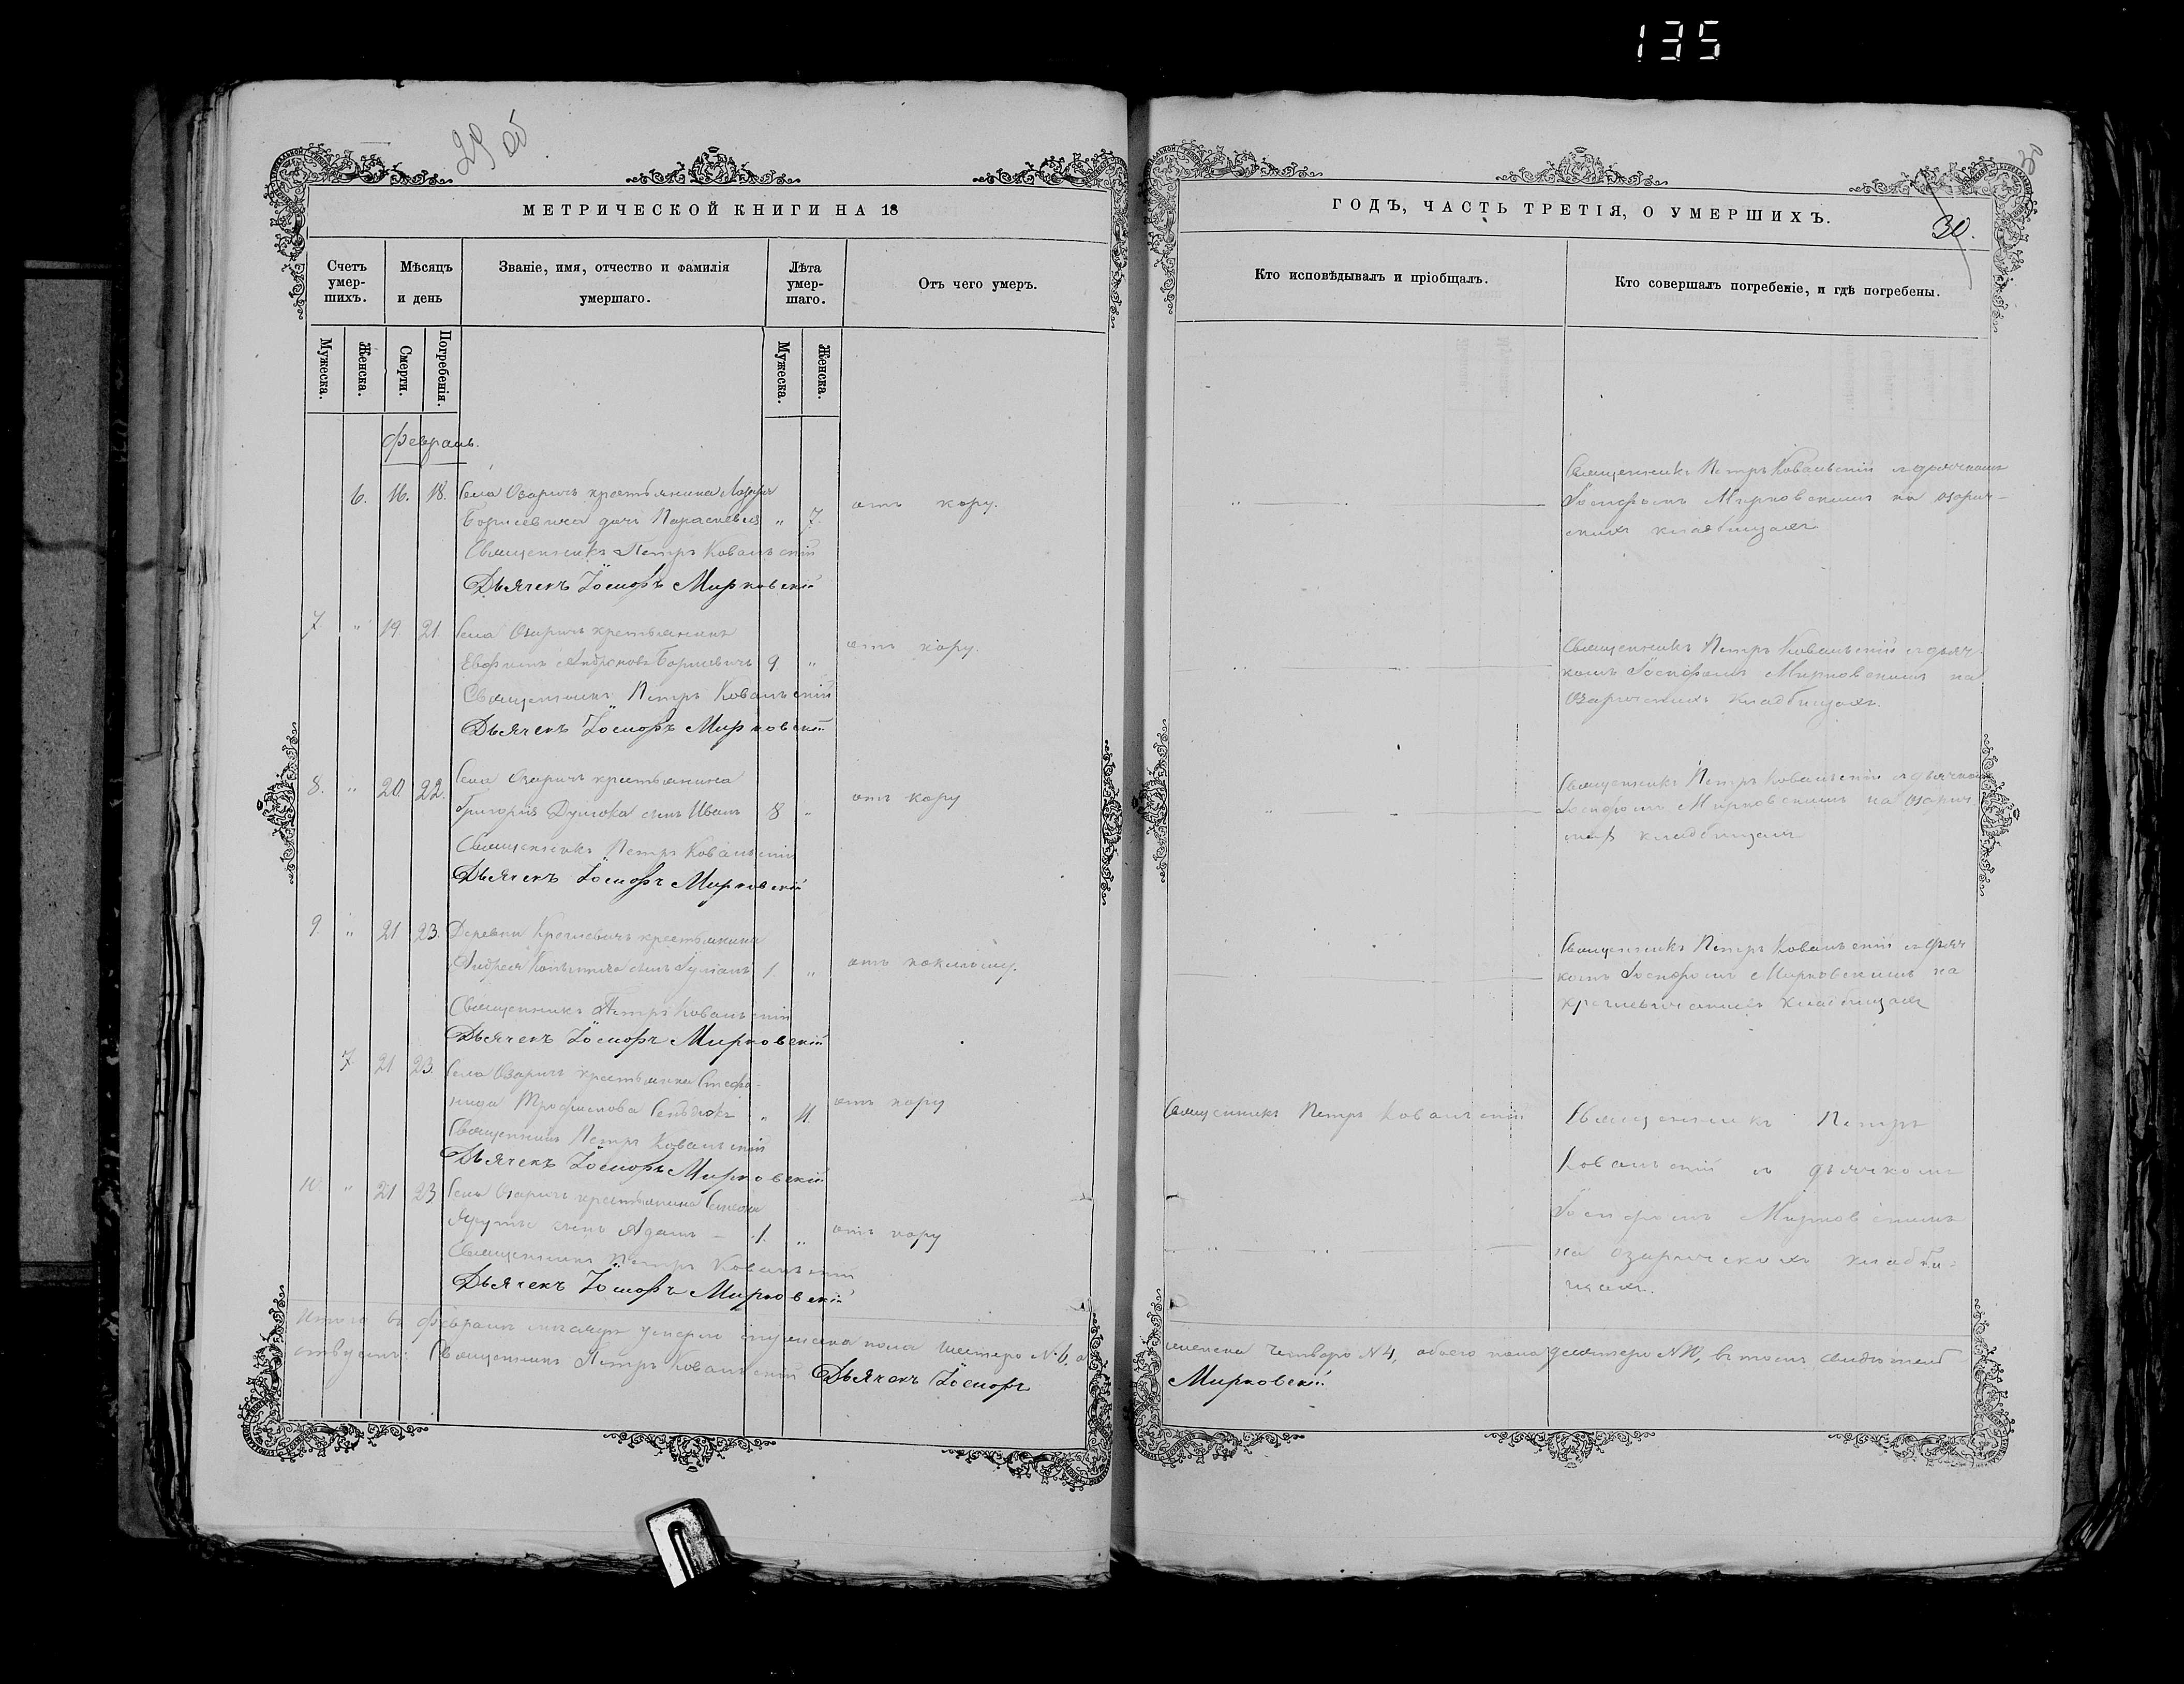 135
29 об
МЕТРИЧЕСКОЙ КНИГИ НА 18
Счетъ умер-шихъ.
Мѣсяцъ и день
Званіе, имя, отчество и фамилія умершаго.
Лѣта умер-шаго.
Отъ чего умеръ.
Мужеска.
Женска.
Смерти.
Погребенія.
Мужеска.
Женска.
Февраль.
6. 16. 18. Села Озаричъ крестьянина Лазаря
Борисевича дочь Параскевія " 7. отъ кору.
Священникъ Петръ Ковальскій
Дьячекъ Іосифъ Мирковскій
7 " 19 21 Села Озаричъ крестьянинъ
Евфимъ Борисевичъ 9 " отъ кору.
Священникъ Петръ Ковальскій
Дьячекъ Іосифъ Мирковскій
8. " 20. 22. Села Озаричъ крестьянина
Григорія сынъ Иванъ 8 " отъ кору
Священникъ Петръ Ковальскій
Дьячекъ Іосифъ Мирковскій
9. " 21 23. Деревни крестьянина
Андрея сынъ 1 " отъ
Священникъ Петръ Ковальскій
Дьячекъ Іосифъ Мирковскій
7 21 23. Села Озаричъ крестьянка Стефа-
нида Трофимова " 4. отъ кору
Священникъ Петръ Ковальскій
Дьячекъ Іосифъ Мирковскій
10. " 21 23 Села Озаричъ крестьянина
сынъ Адамъ – 1. " отъ кору
Священникъ Петръ Ковальскій
Дьячекъ Іосифъ Мирковскій
Итого въ Февралѣ мѣсяцѣ умерло мужеска пола шестеро №6, а
Священникъ Петръ Ковальскій Дьячекъ Іосифъ
ГОДЪ, ЧАСТЬ ТРЕТІЯ, О УМЕРШИХЪ.
30.
Кто исповѣдывалъ и пріобщалъ.
Кто совершалъ погребеніе, и гдѣ погребены.
Священникъ Петръ Ковальскій съ дьячкомъ
Іосифомъ Мирковскимъ на озарич-
скихъ кладбищахъ
Священникъ Петръ Ковальскій съ дьяч-
комъ Іосифомъ Мирковскимъ на
Озаричскихъ кладбищахъ.
Священникъ Петръ Ковальскій съ дьячкомъ
Іосифомъ Мирковскимъ на озарич
кладбищахъ
Священникъ Петръ Ковальскій съ дьяч
комъ Іосифомъ Мирковскимъ на
кладбищахъ
Священникъ Петръ Ковальскій
Священникъ Петръ
Ковальскій съ дьячкомъ
Іосифомъ Мирковскимъ
на озаричскихъ кладби-
щахъ.
женска четверо №4, обоего пола десятеро №10, въ томъ
Мирковскій